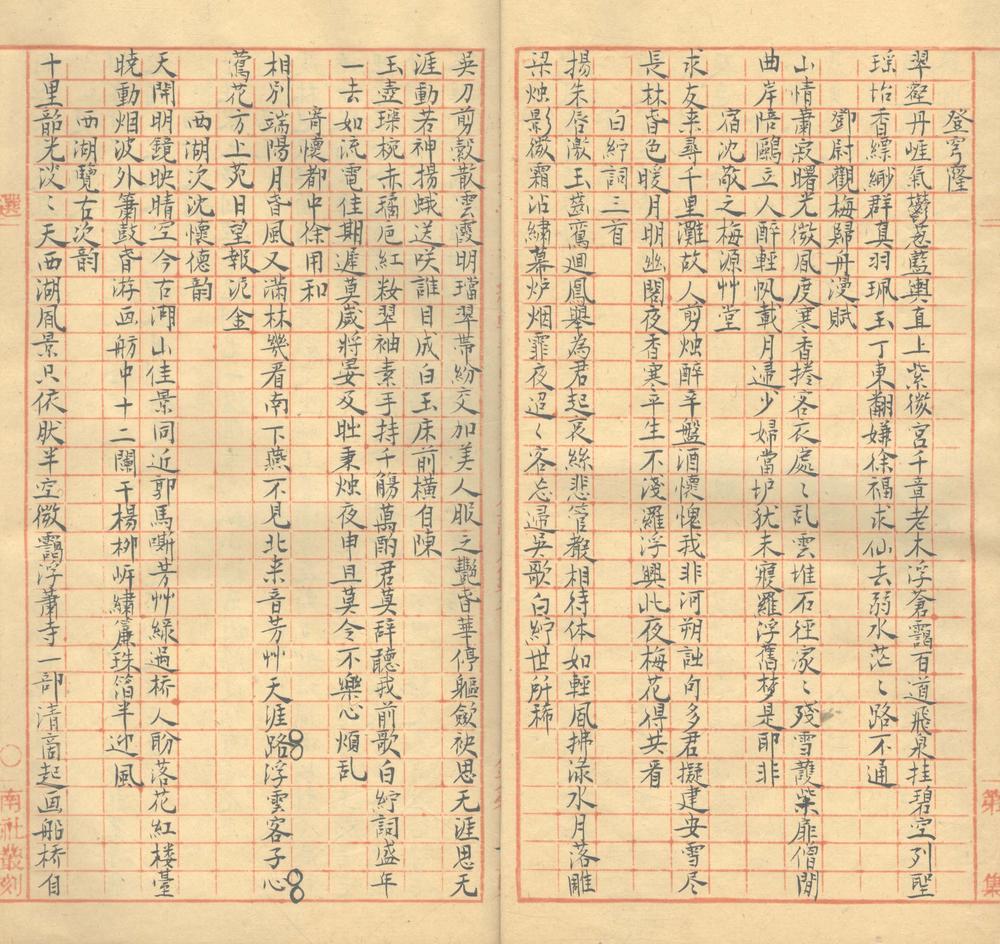 登穹窿
翠壑丹崕氣鬱蔥藍輿直上紫微宮千章老木浮蒼靄百道飛泉挂碧空列聖
瑤坮香縹緲群真羽珮玉丁東翻嫌徐福求仙去弱水茫〻路不通
鄧尉觀梅歸舟漫賦
山情肅寂曙光微風度寒香捲客衣處〻乱雲堆石徑家〻殘雪護柴扉僧閒
曲岸陪鷗立人醉輕帆載月歸少婦當垆犹未寢羅浮舊梦是耶非
宿沈敬之梅源艸堂
求友来尋千里灘故人剪烛醉平盤酒懷愧我非河朔詘句多君擬建安雪尽
長林昏色暖月明幽閣夜香寒平生不淺羅浮興此夜梅花得共看
白紵詞三首
揚朱唇激玉齒鸞迴鳳舉為君起哀絲悲管嚴相待体如輕風拂渌水月落雕
梁烛影微霜沾繡幕炉烟霏夜迢〻客忘歸吳歌白紵世所稀
吳刀剪縠散雲霞明璫翠帶紛交加美人服之艷昏華停軀斂袂思无涯思无
涯動若神揚蛾送咲誰目成白玉床前橫自陳
玉壺琹椀赤瑀卮紅妝翠袖素手持千觴萬酌君莫辞聽我前歌白紵詞盛年
一去如流電佳期遲莫歲將晏及䀜秉烛夜申旦莫令不樂心煩乱
旾懷都中徐用和
相別端陽月昏風又滿林幾看南下燕不見北来音芳艸天涯路浮雲客子心
鶯花方上苑日望報泥金
西湖次沈懷德韵
天開明鏡映晴空今古湖山佳景同近郭馬嘶芳艸綠過桥人盼落花紅楼臺
曉動烟波外簫鼓旾游画舫中十二闌干楊柳岍繡簾珠箔半迎風
西湖覽古次韵
十里韶光淡〻天西湖風景只依肰半空微靄浮蕭寺一部清商起画船桥自
選
〇
南社叢刻
第
集